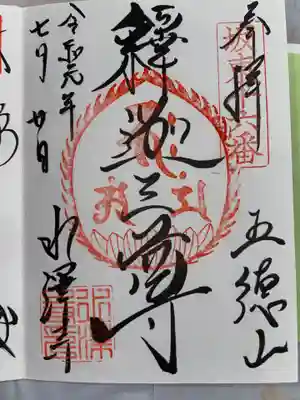 奉拝
坂東十六番
五徳山
釋迦三尊
令和元年
七月廿日
水澤寺